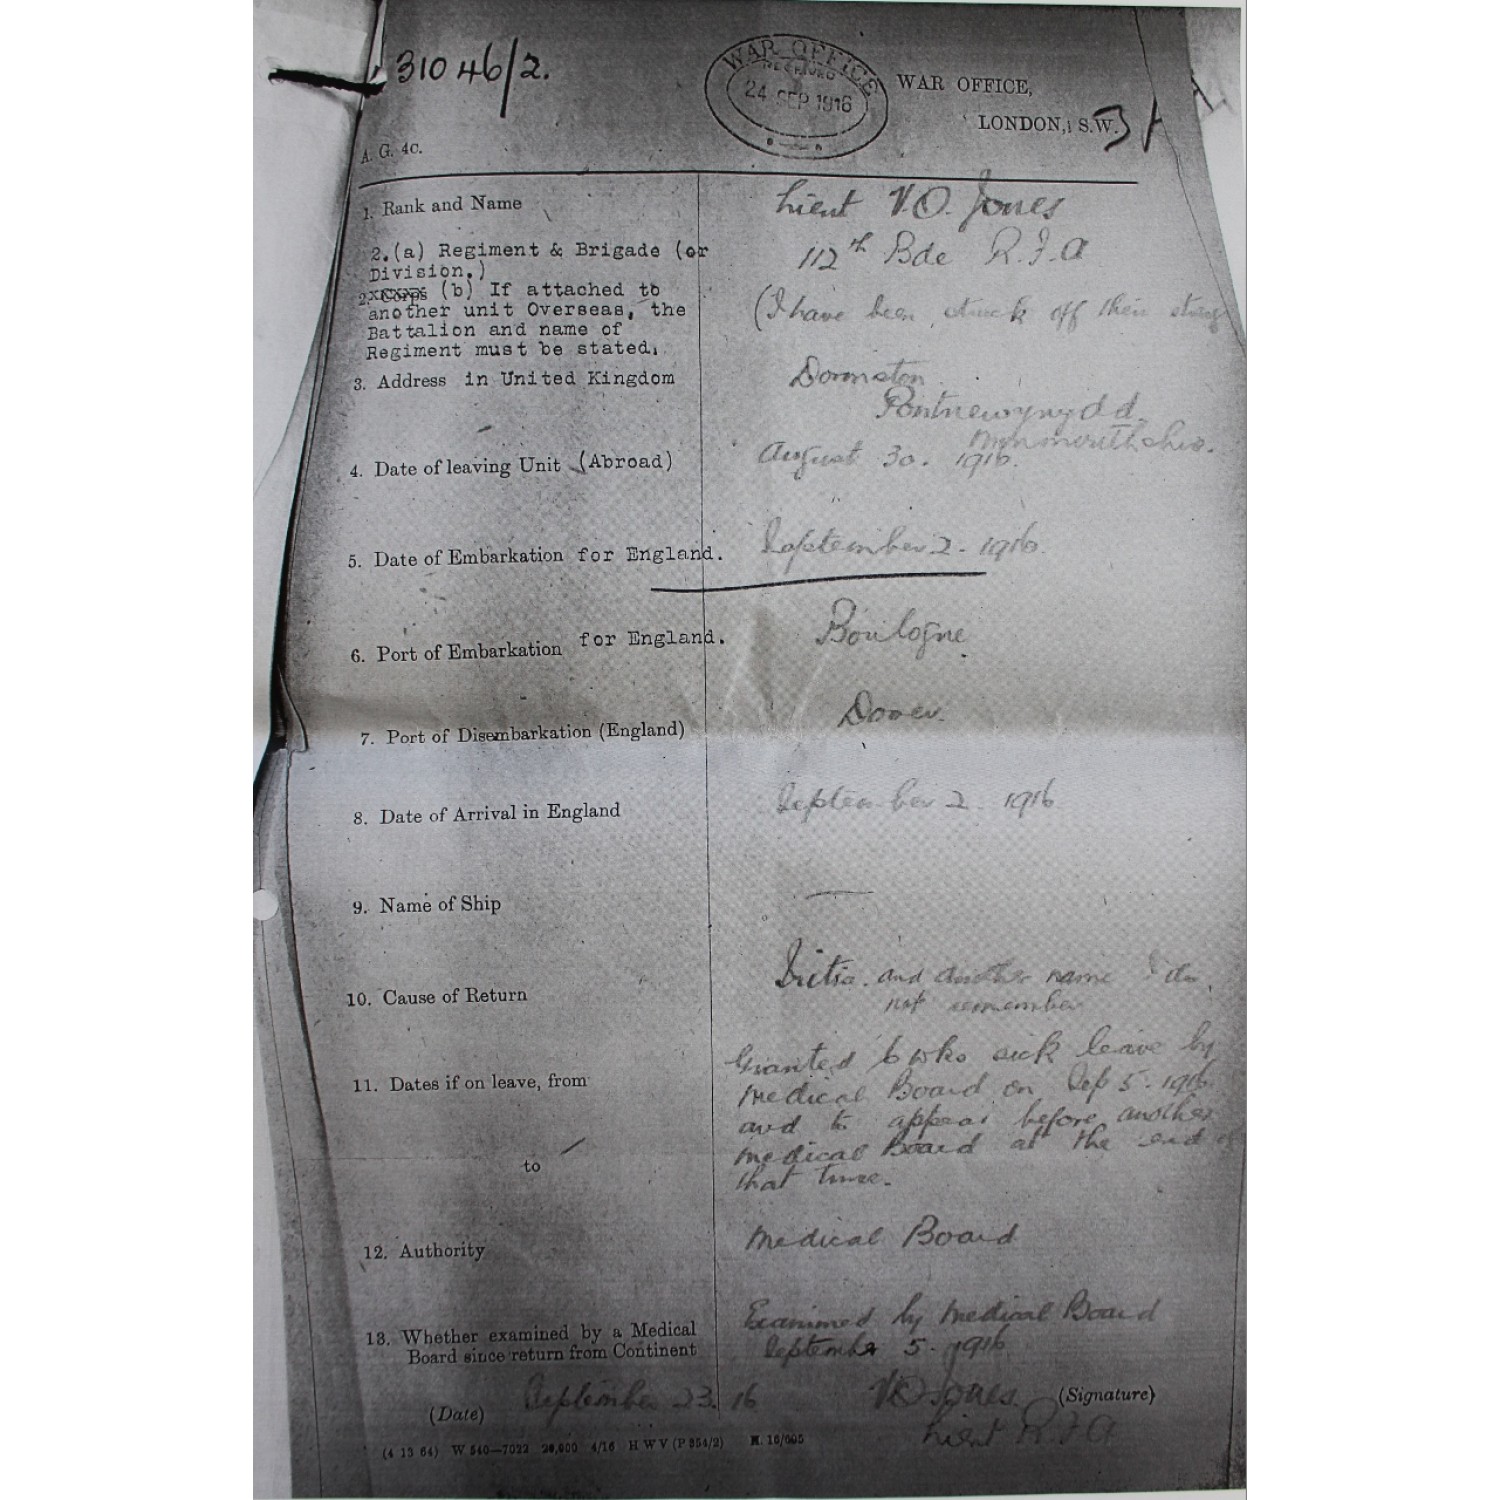 31046/2.
WAR OFFICE
RECEIVED
24 SEP 1916
WAR OFFICE,
LONDON, S.W.
A. G. 4c.
1. Rank and Name
Lieut V.O. Jones
2.(a) Regiment & Brigade (or
Division.)
112th Bde R.F.A
2. Corps (b) If attached to
another unit Overseas, the
Battalion and name of
Regiment must be stated.
(I have been struck off their
3. Address in United Kingdom
Dormston
Pontnewynydd
Monmouthshire.
4. Date of leaving Unit (Abroad)
August 30. 1916.
5. Date of Embarkation for England.
September 2. 1916.
6. Port of Embarkation for England.
Boulogne.
7. Port of Disembarkation (England)
Dover.
8. Date of Arrival in England
September 2. 1916
9. Name of Ship
—
10. Cause of Return
and another name I do
not remember
11. Dates if on leave, from
to
Granted 6 wks sick leave by
Medical Board on Sep 5. 1916.
and to appear before another
Medical Board at the end of
that time.
12. Authority
Medical Board
13. Whether examined by a Medical
Board since return from Continent
Examined by Medical Board
September 5. 1916
(Date) September 23. 16
V O Jones. (Signature)
Lieut R.F.A
(4 13 64) W 540—7022 20,000 4/16 H W V (P 854/2) H. 16/605